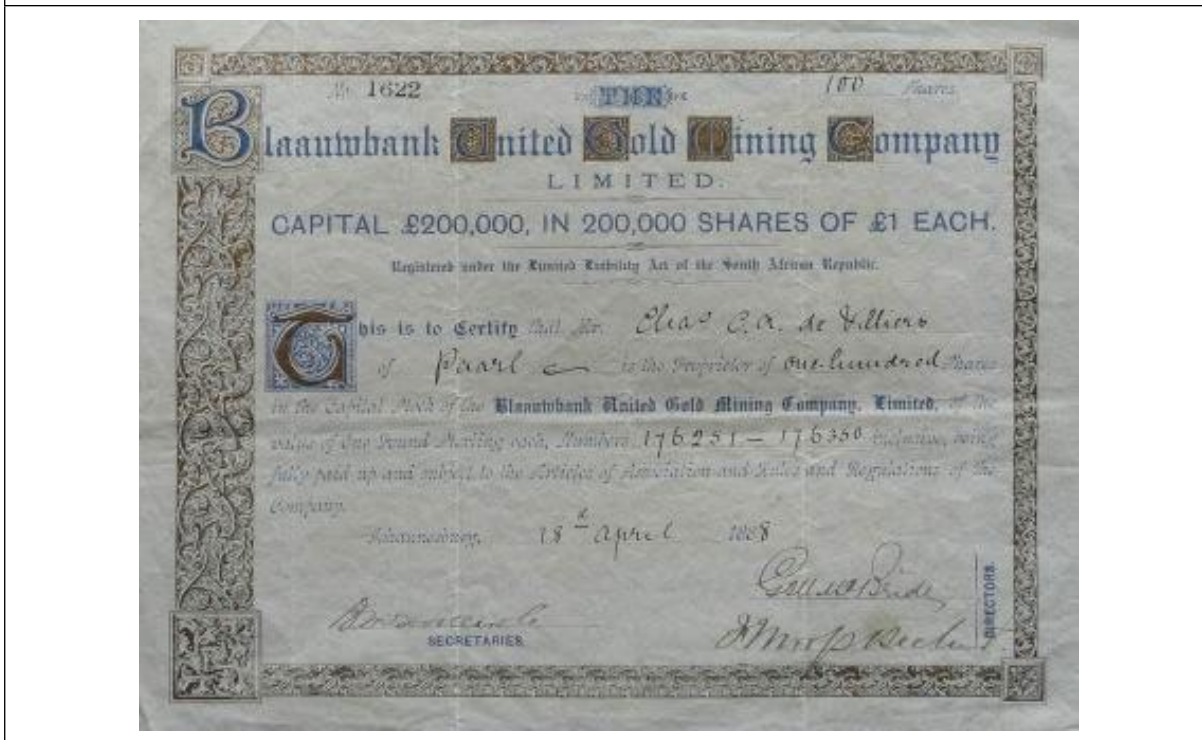 No. 1622 100 Shares
THE
Blaauwbank United Gold Mining Company
LIMITED.
CAPITAL £200,000, IN 200,000 SHARES OF £1 EACH.
Registered under the Limited Liability Act of the South African Republic.
This is to Certify that Mr. Chas C. A. de Villiers
of Paarl is the Proprietor of one hundred Shares
in the Capital Stock of the Blaauwbank United Gold Mining Company, Limited, of the
value of One Pound Sterling each, Numbers 176251 – 176350 inclusive, being
fully paid up and subject to the Articles of Association and Rules and Regulations of the
Company.
Johannesburg, 18th April 1888
SECRETARIES.
DIRECTORS.